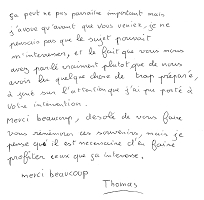 ça peut ne pas paraître important mais
j'avoue qu'avant que vous veniez, je ne
pensais pas que le sujet pourrait
m'intéresser, et le fait que vous nous
avez parlé vraiment plutôt que de nous
avoir lu quelque chose de trop préparé,
a joué sur l'attention que j'ai pu porté à
votre intervention.
Merci beaucoup, désolé de vous faire
vous remémorer ces souvenirs, mais je
pense que il est nécessaire d'en faire
profiter ceux que ça intéresse.
merci beaucoup
Thomas